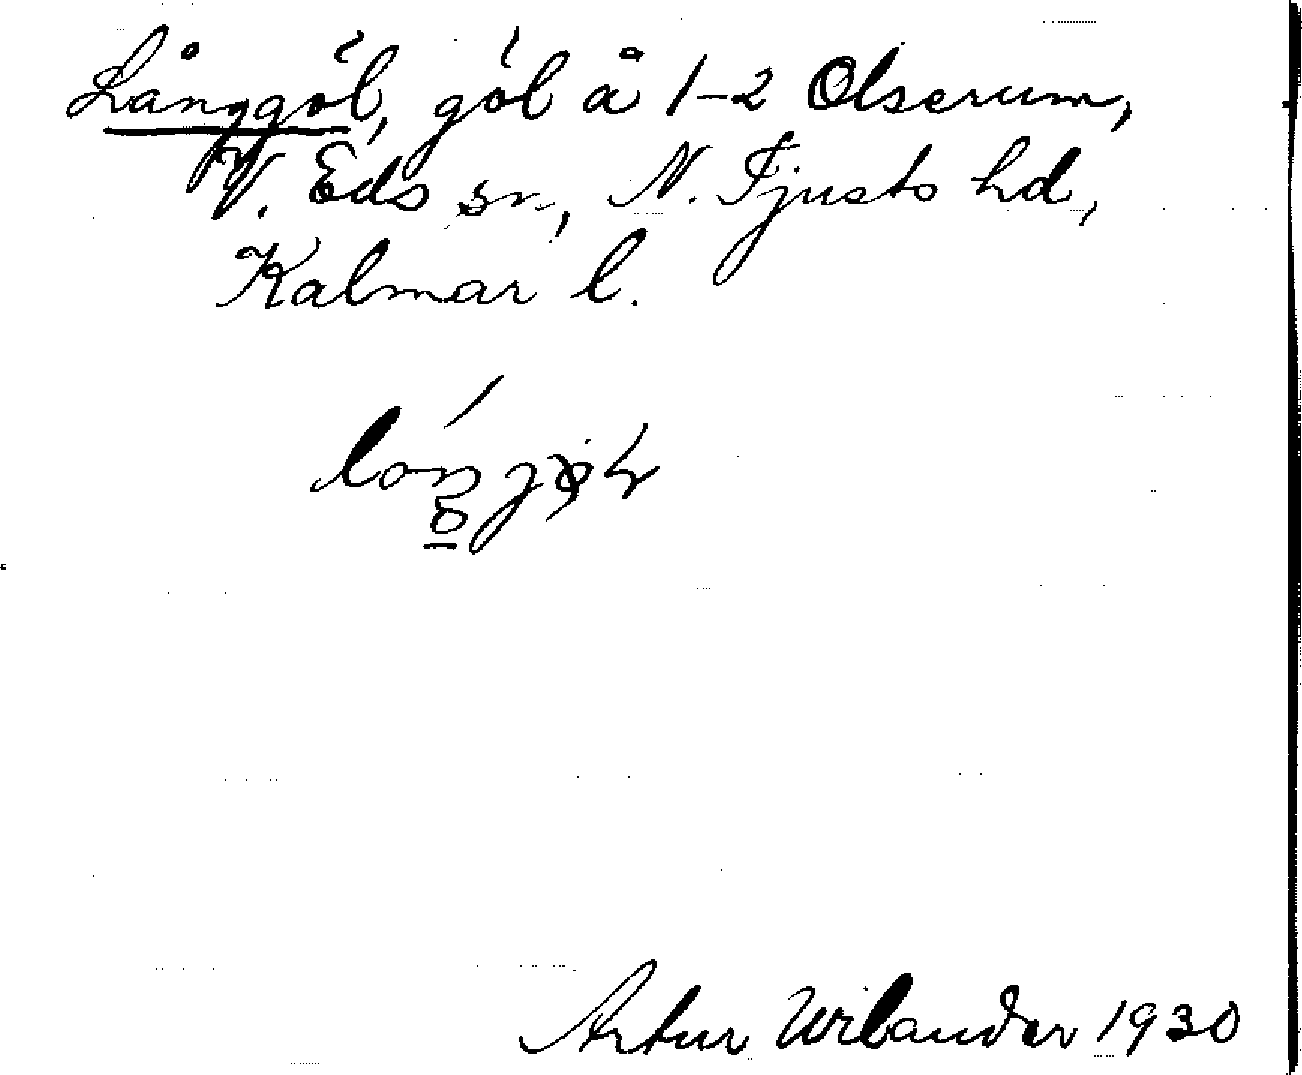 Långgöl, göl å 1-2 Olserum,
V. Eds sn, N. Tjusts hd,
Kalmar l.
Artur Wilander 1930